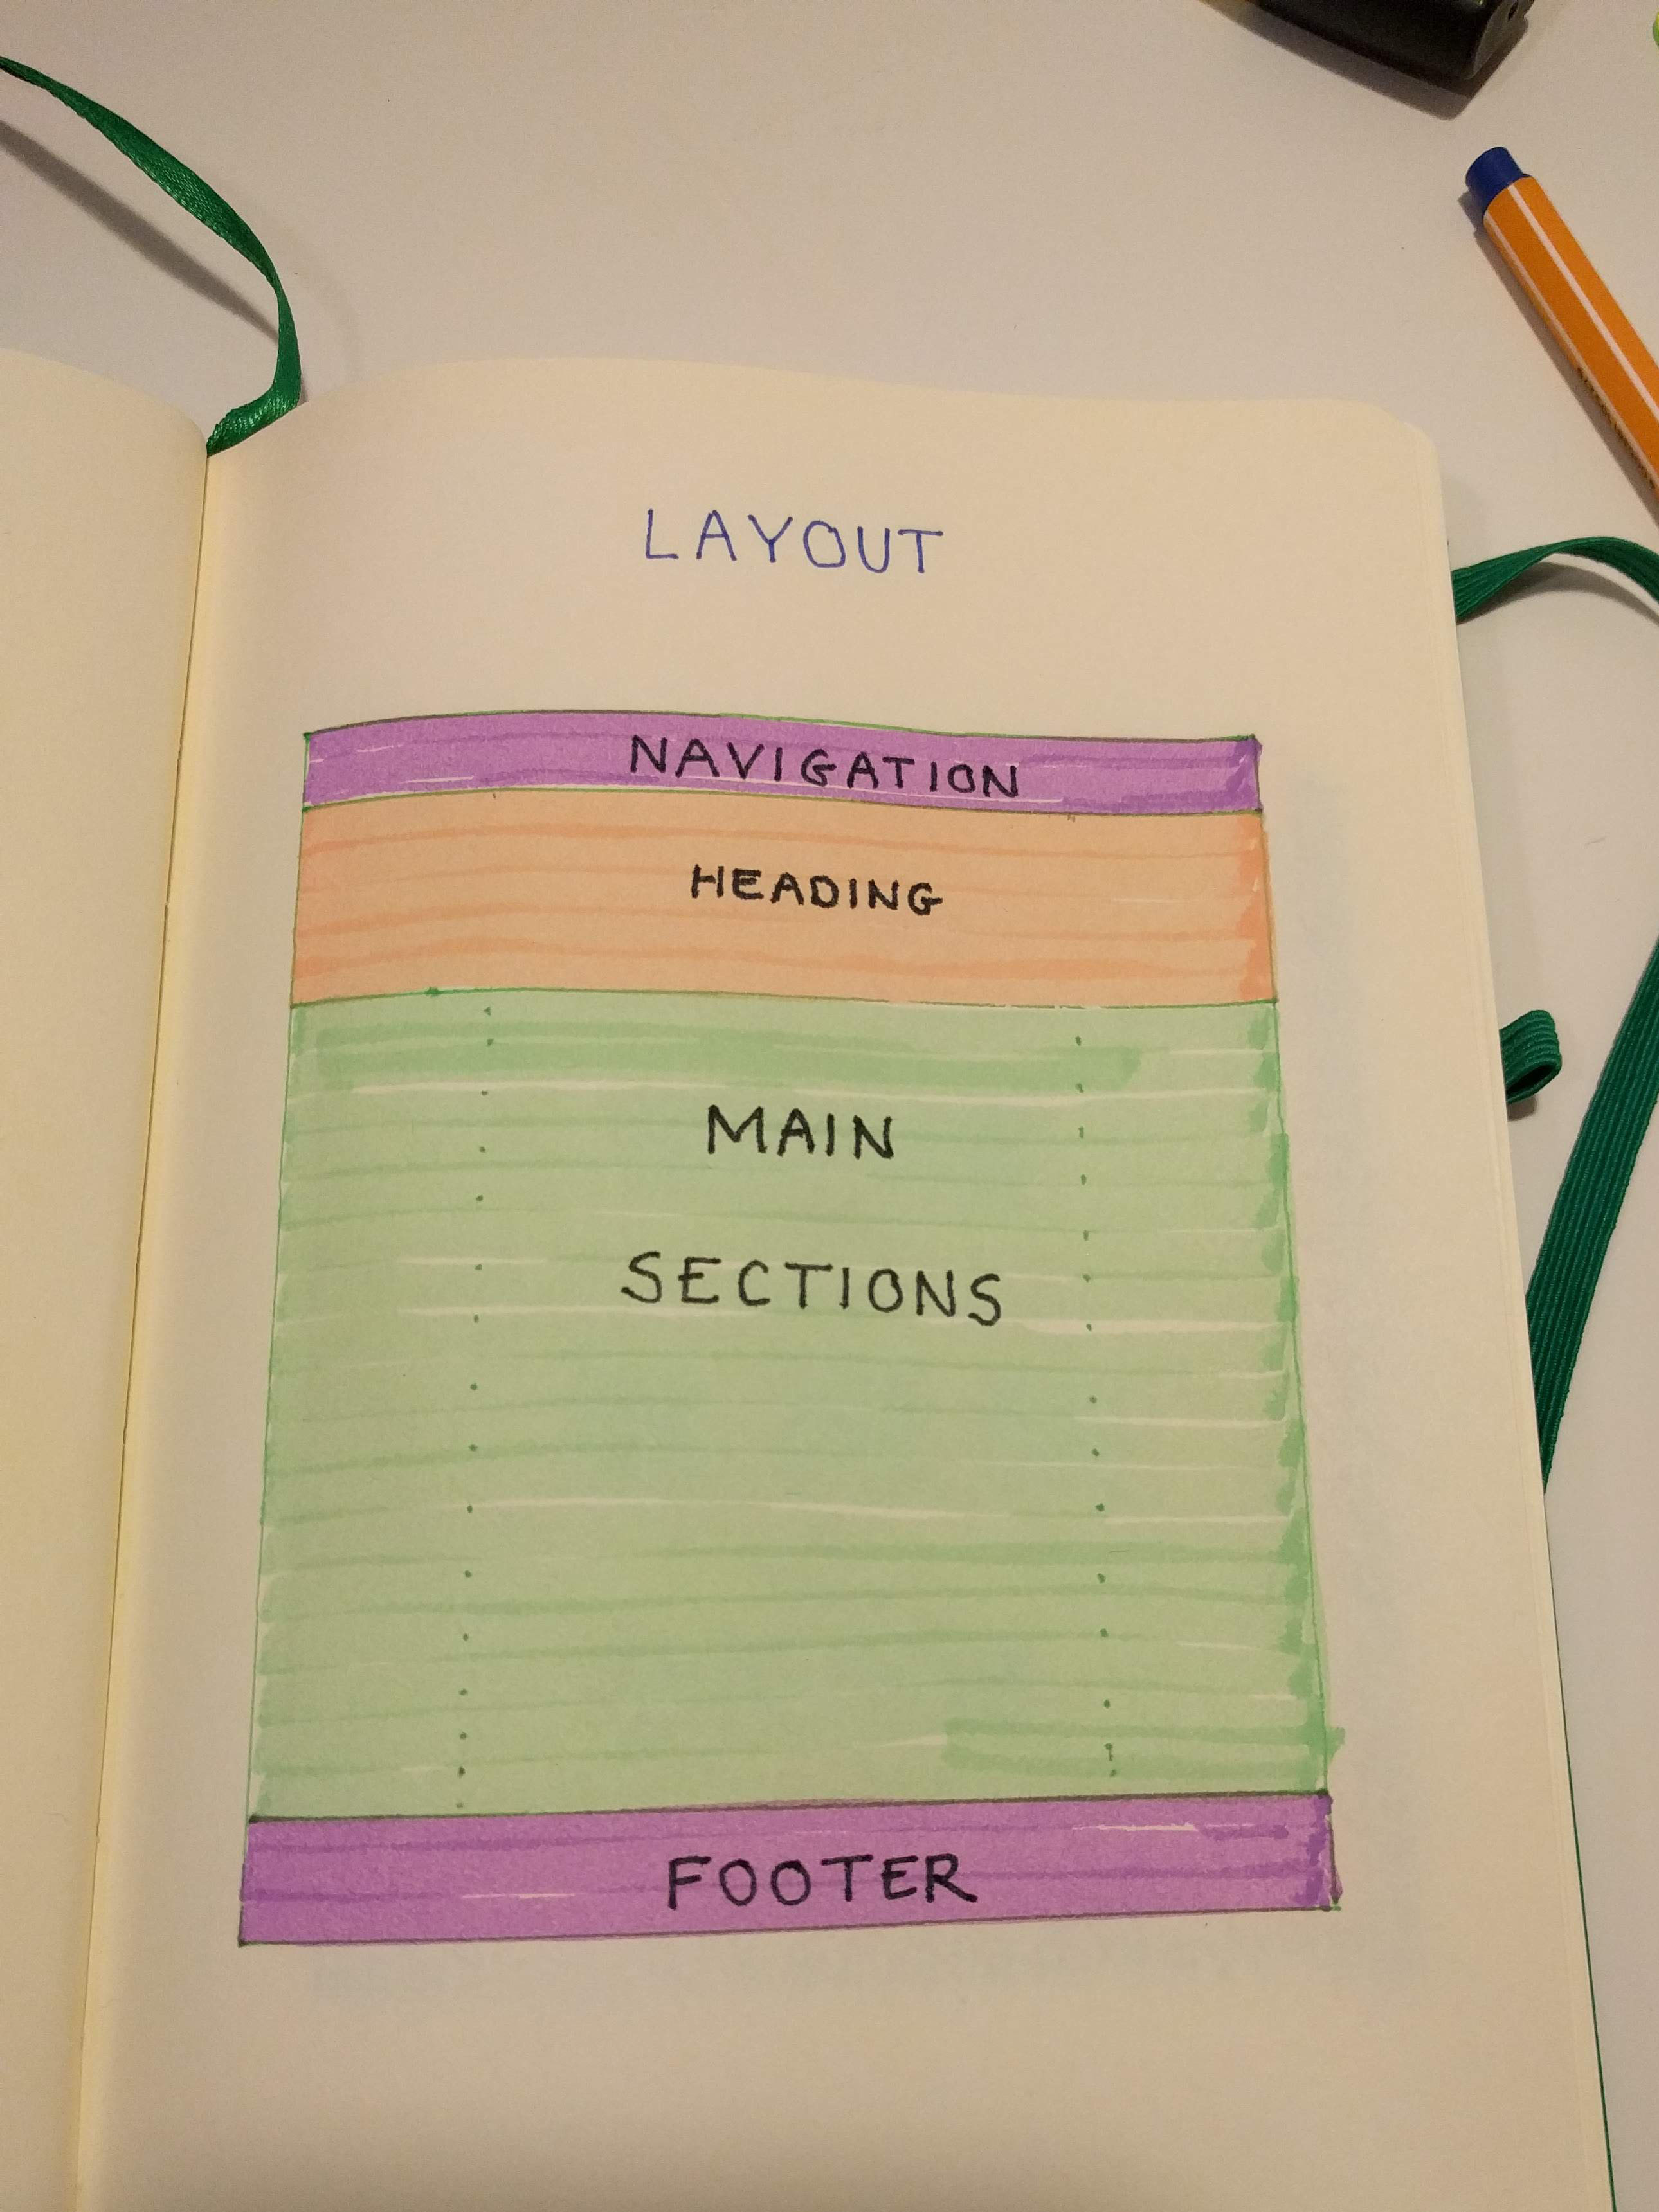 LAYOUT
NAVIGATION
HEADING
MAIN
SECTIONS
FOOTER